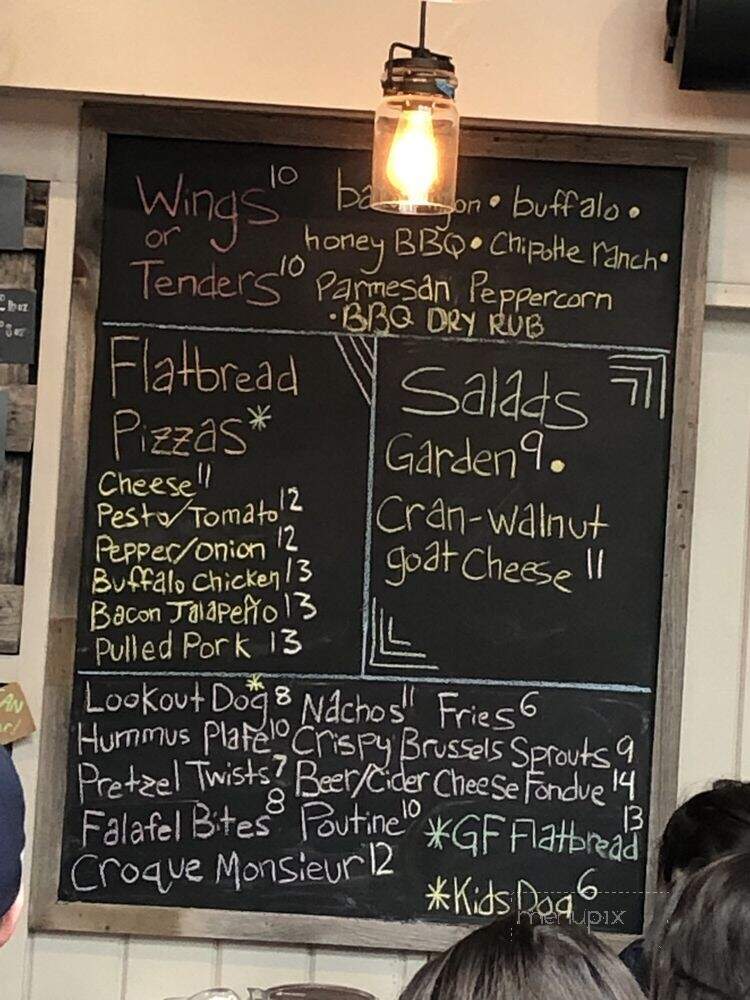 Wings 10
or
Tenders 10
buffalo •
honey BBQ • Chipotle ranch •
Parmesan Peppercorn
• BBQ DRY RUB
Flatbread
Pizzas*
Cheese 11
Pesto/Tomato 12
Pepper/onion 12
Buffalo Chicken 13
Bacon Jalapeño 13
Pulled Pork 13
Salads
Garden 9 •
Cran-walnut
goat Cheese 11
Lookout Dog* 8 Nachos 11 Fries 6
Hummus Plate 10 Crispy Brussels Sprouts 9
Pretzel Twists 7 Beer/Cider Cheese Fondue 14
Falafel Bites 8 Poutine 10 *GF Flatbread 13
Croque Monsieur 12
*Kids Dog 6
menupix